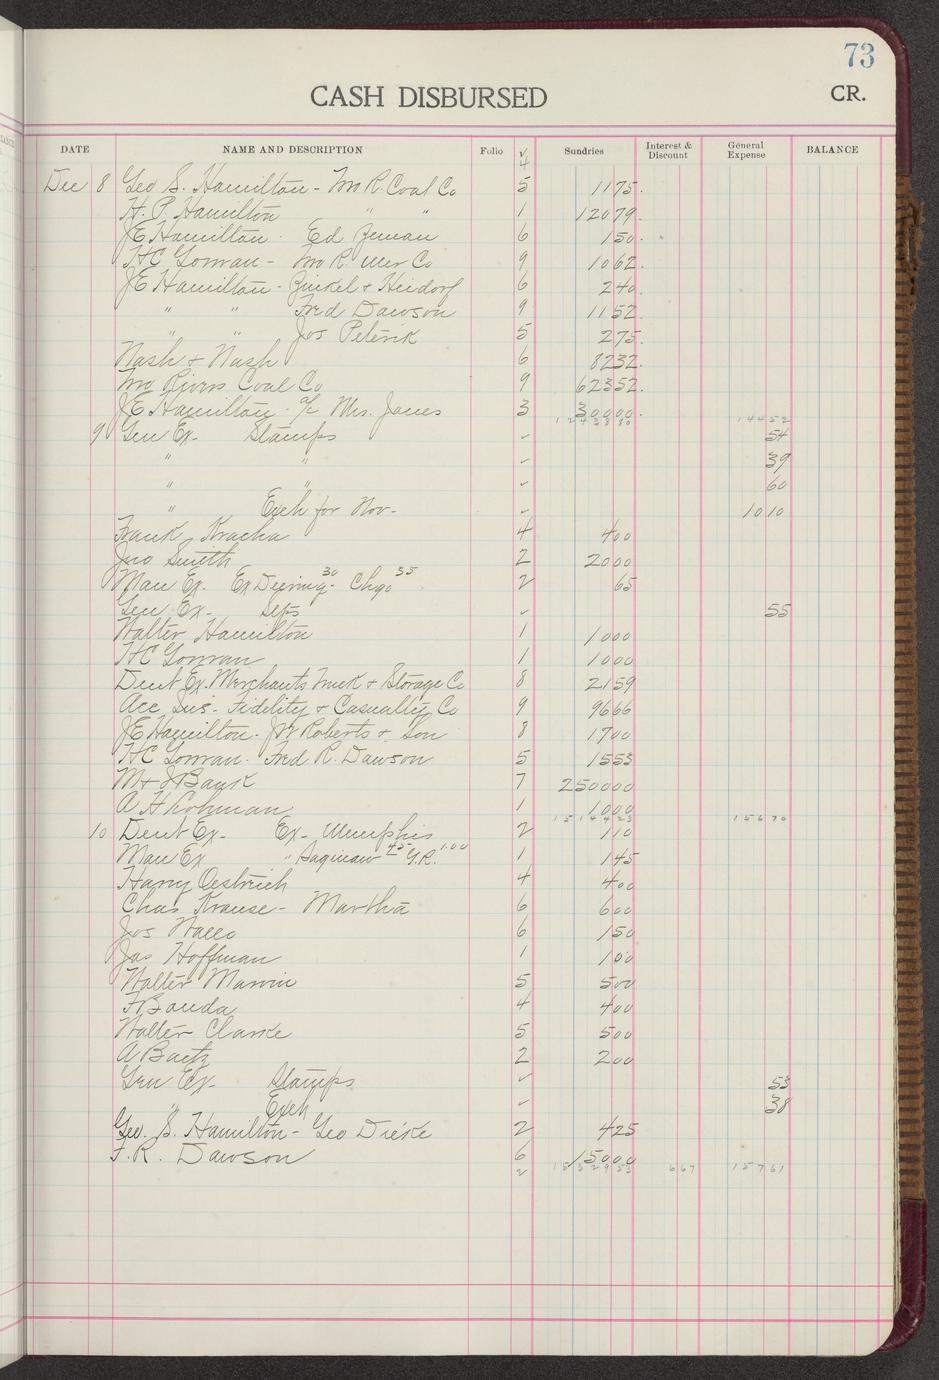 73
CASH DISBURSED CR.
DATE NAME AND DESCRIPTION Folio ✓ Sundries Interest & Discount General Expense BALANCE
4
Dec 8 Geo S. Hamilton - Mo R. Coal Co 5 1175
H. P. Hamilton " " 1 12079
JE Hamilton Ed Zeman 6 150
HC Gorman - Mo R. Mer Co 9 1062
JE Hamilton - Zinkel & Heidorf 6 240
" " Fred Dawson 9 1152
" " Jos Peterik 5 275
Nash & Nash 6 8232
Mo Rivers Coal Co 9 62352
JE Hamilton a/c Mrs. Jones 3 30000
14452
9 Gen Ex- Stamps ✓ 54
" " ✓ 39
" " ✓ 60
" Exch for Nov- ✓ 1010
Frank Kracha 4 400
Jno Smith 2 2000
Man Ex. Ex Deering 30 - Chgo 35 2 65
Gen Ex- ✓ 55
Walter Hamilton 1 1000
HC Gorman 1 1000
Dent Ex. Merchants Truck & Storage Co 8 2159
Acc Ins- Fidelity & Casualty Co 9 9666
JE Hamilton - JW Roberts & Son 8 1700
HC Gorman - Fred R. Dawson 5 1553
M & J Bank 7 250000
A H Lohman 1 1000
1514423 15670
10 Dent Ex- Ex- Memphis 2 110
Man Ex " Saginaw 45 G.R. 1.00 1 145
Harry Oestrich 4 400
Chas Krause - Martha 6 600
Jos 6 150
Jas Hoffman 1 100
Walter Marvin 5 500
F Banda 4 400
Walter Clarke 5 500
A Baetz 2 200
Gen Ex- Stamps ✓ 53
" Exch ✓ 38
Geo. S. Hamilton - Geo Dieke 2 425
F. R. Dawson 6 15000
2 1532953 667 15761